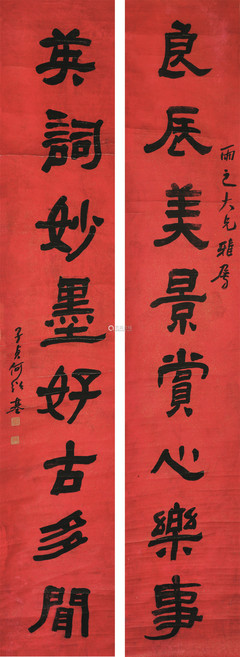 良辰美景賞心樂事
雨之大兄雅屬
英詞妙墨好古多聞
子貞何紹基